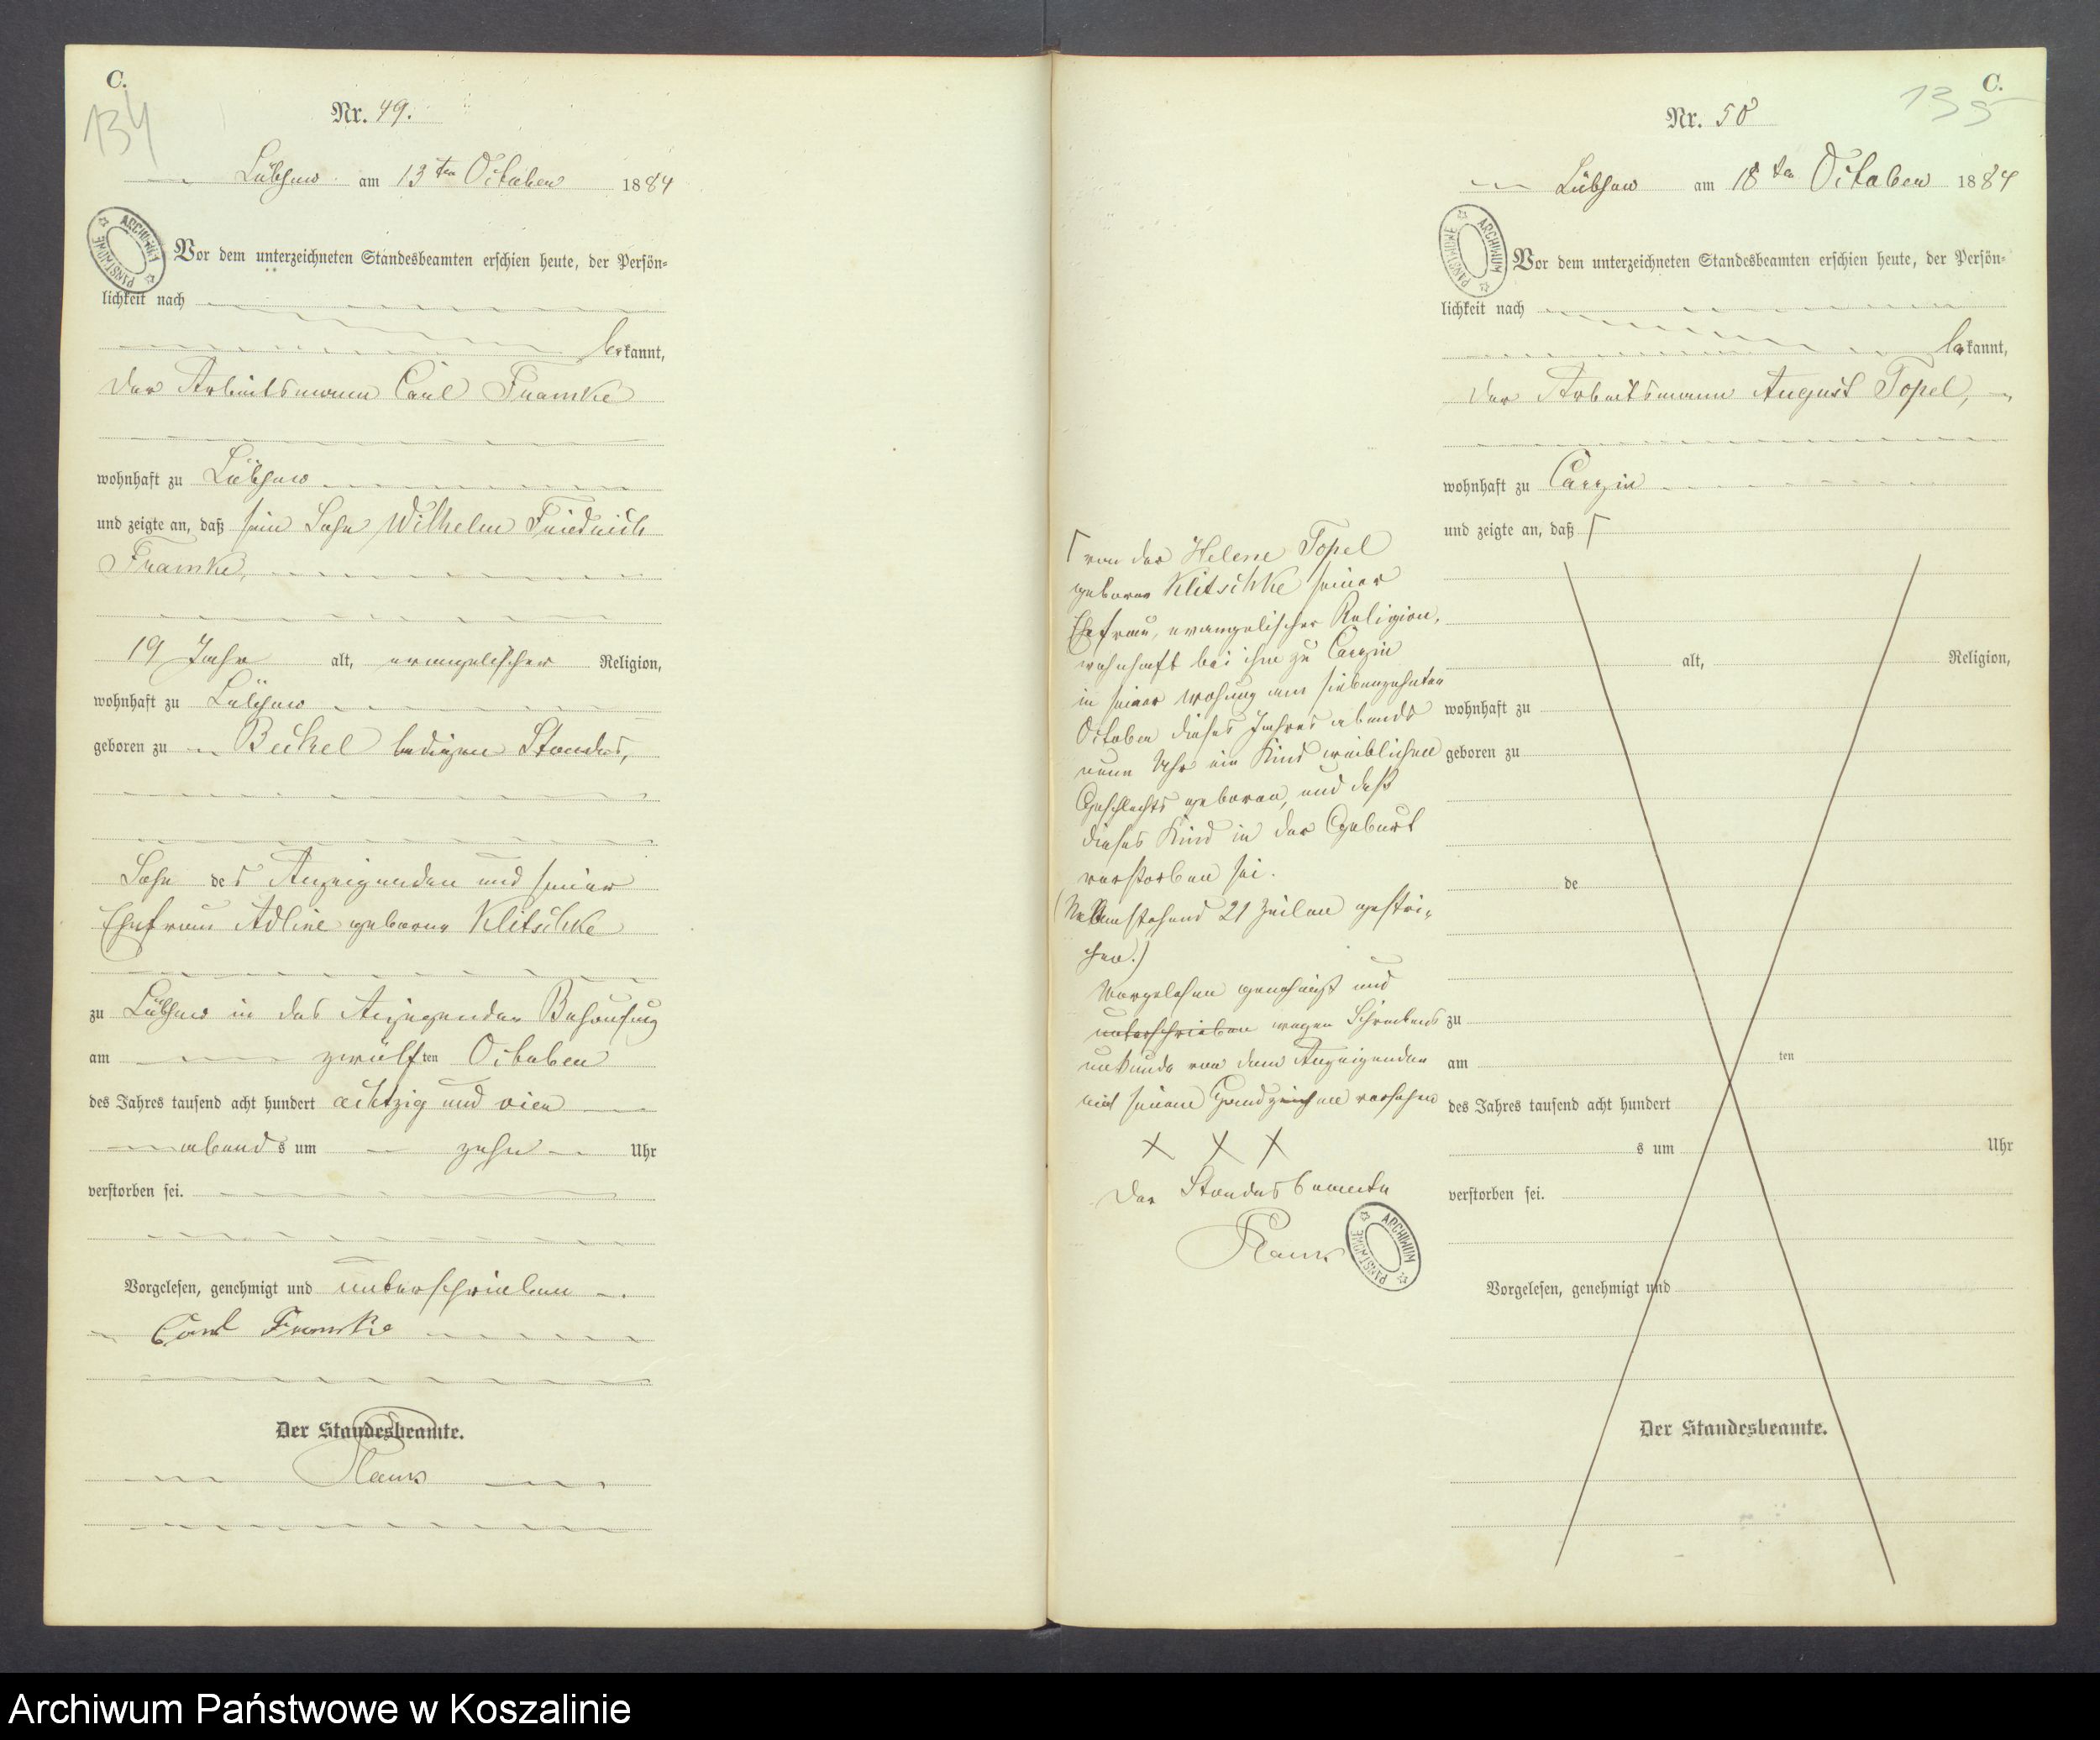 C.
134
Nr. 49.
Lübzow am 13ten October 1884
ARCHIWUM PAŃSTWOWE
Vor dem unterzeichneten Standesbeamten erschien heute, der Persön-
lichkeit nach
bekannt,
der Arbeitsmann Carl Framke
wohnhaft zu Lübzow
und zeigte an, daß sein Sohn Wilhelm Friedrich
Framke,
19 Jahr alt, evangelischer Religion,
wohnhaft zu Lübzow
geboren zu ledigen Standes,
Sohn des Anzeigenden und seiner
Ehefrau Adline geborene Klitschke
zu Lübzow in des Anzeigenden Behausung
am zwölften October
des Jahres tausend acht hundert achtzig und vier
abends um zehn Uhr
verstorben sei.
Vorgelesen, genehmigt und unterschrieben
Carl Framke
Der Standesbeamte.
C.
135
Nr. 50
Lübzow am 18ten October 1884
ARCHIWUM PAŃSTWOWE
Vor dem unterzeichneten Standesbeamten erschien heute, der Persön-
lichkeit nach
bekannt,
der Arbeitsmann August Topel,
wohnhaft zu Carzin
und zeigte an, daß
von der Helene Topel
geborne Klitschke seiner
Ehefrau, evangelischer Religion,
wohnhaft bei ihm zu Carzin
in seiner Wohnung am siebenzehnten
October dieses Jahres abends
neun Uhr ein Kind weiblichen
Geschlechts geboren, und daß
dieses Kind in der Geburt
verstorben sei.
(Nebenstehend 21 Zeilen gestri-
chen.)
Vorgelesen genehmigt und
unterschrieben wegen Schreibens
unkunde von dem Anzeigenden
mit seinem Handzeichen versehen
X X X
Der Standesbeamte
ARCHIWUM PAŃSTWOWE
alt, Religion,
wohnhaft zu
geboren zu
de
zu
am ten
des Jahres tausend acht hundert
s um Uhr
verstorben sei.
Vorgelesen, genehmigt und
Der Standesbeamte.
Archiwum Państwowe w Koszalinie